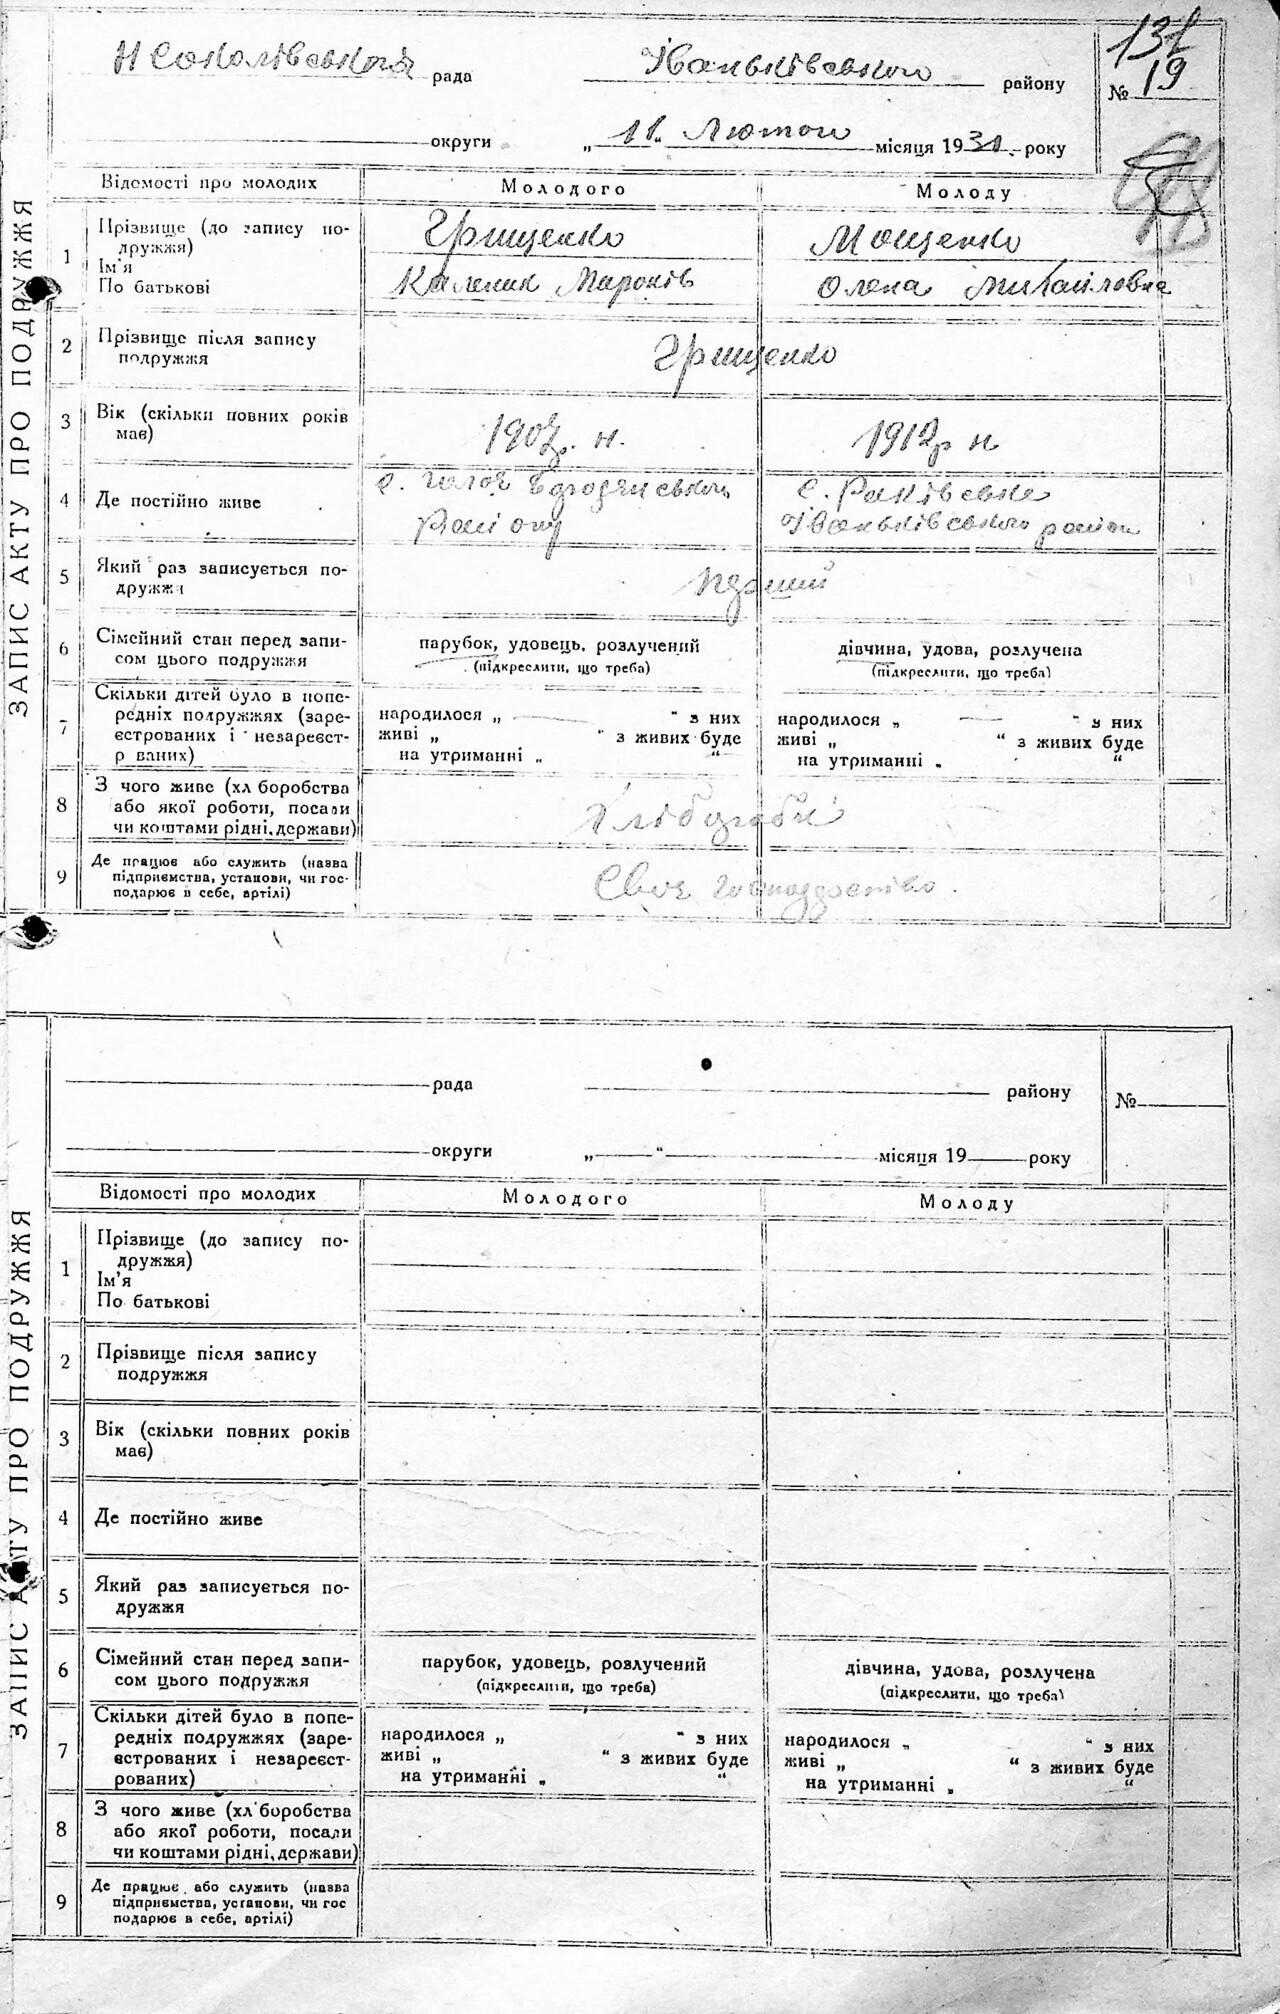 Н Соколівська рада Іваньківського району № 19
131
округи „ 11 “ Лютого місяця 1931 року
Відомості про молодих Молодого Молоду
ЗАПИС АКТУ ПРО ПОДРУЖЖЯ
1 Прізвище (до запису по-
дружжя)
Ім'я
По батькові
Грищенко Мощенко
Каленик Миронів Олена Михайловна
2 Прізвище після запису
подружжя
Грищенко
3 Вік (скільки повних років
має)
1907р. н. 1912р н
4 Де постійно живе
с. Бородянського с.
Району Іваньківського район
5 Який раз записується по-
дружжя
перший
6 Сімейний стан перед запи-
сом цього подружжя
парубок, удовець, розлучений дівчина, удова, розлучена
(підкреслити, що треба) (підкреслити, що треба)
7 Скільки дітей було в попе-
редніх подружжях (заре-
єстрованих і незареєст-
р ваних)
народилося „ “ з них народилося „ “ з них
живі „ “ з живих буде живі „ “ з живих буде
на утриманні „ “ на утриманні „ “
8 З чого живе (хл боробства
або якої роботи, посади
чи коштами рідні, держави)
Хлібороби
9 Де працює або служить (назва
підприємства, установи, чи гос-
подарює в себе, артілі)
Своє господарство.
рада району №
округи „ “ місяця 19 року
Відомості про молодих Молодого Молоду
ЗАПИС АКТУ ПРО ПОДРУЖЖЯ
1 Прізвище (до запису по-
дружжя)
Ім'я
По батькові
2 Прізвище після запису
подружжя
3 Вік (скільки повних років
має)
4 Де постійно живе
5 Який раз записується по-
дружжя
6 Сімейний стан перед запи-
сом цього подружжя
парубок, удовець, розлучений дівчина, удова, розлучена
(підкреслити, що треба) (підкреслити, що треба)
7 Скільки дітей було в попе-
редніх подружжях (заре-
єстрованих і незареєст-
рованих)
народилося „ “ з них народилося „ “ з них
живі „ “ з живих буде живі „ “ з живих буде
на утриманні „ “ на утриманні „ “
8 З чого живе (хл боробства
або якої роботи, посади
чи коштами рідні, держави)
9 Де працює або служить (назва
підприємства, установи, чи гос
подарює в себе, артілі)